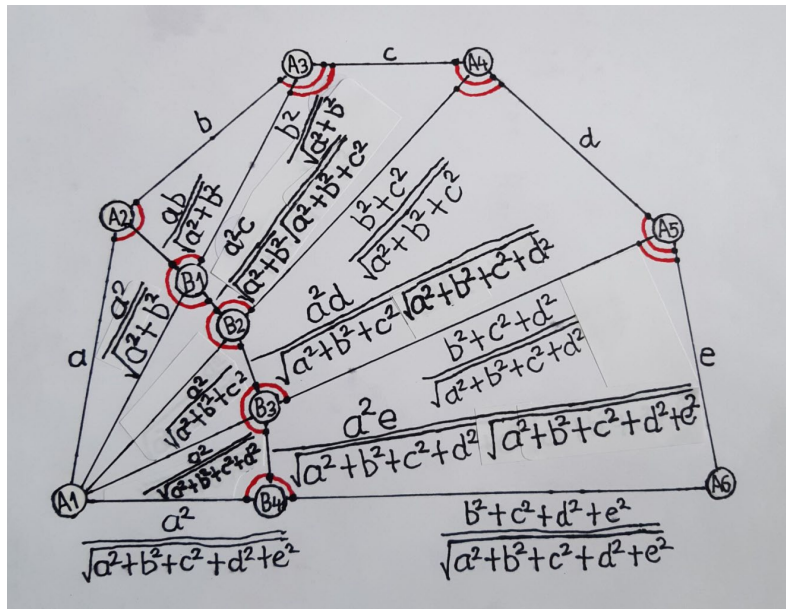 A3
c
A4
b
b²
√a²+b²
d
A2
ab
√a²+b²
a²c
√a²+b² √a²+b²+c²
b²+c²
√a²+b²+c²
A5
B1
a²
√a²+b²
B2
a²d
√a²+b²+c² √a²+b²+c²+d²
a
b²+c²+d²
√a²+b²+c²+d²
e
a²
√a²+b²+c²
B3
a²
√a²+b²+c²+d²
a²e
√a²+b²+c²+d² √a²+b²+c²+d²+e²
A1
B4
A6
a²
√a²+b²+c²+d²+e²
b²+c²+d²+e²
√a²+b²+c²+d²+e²